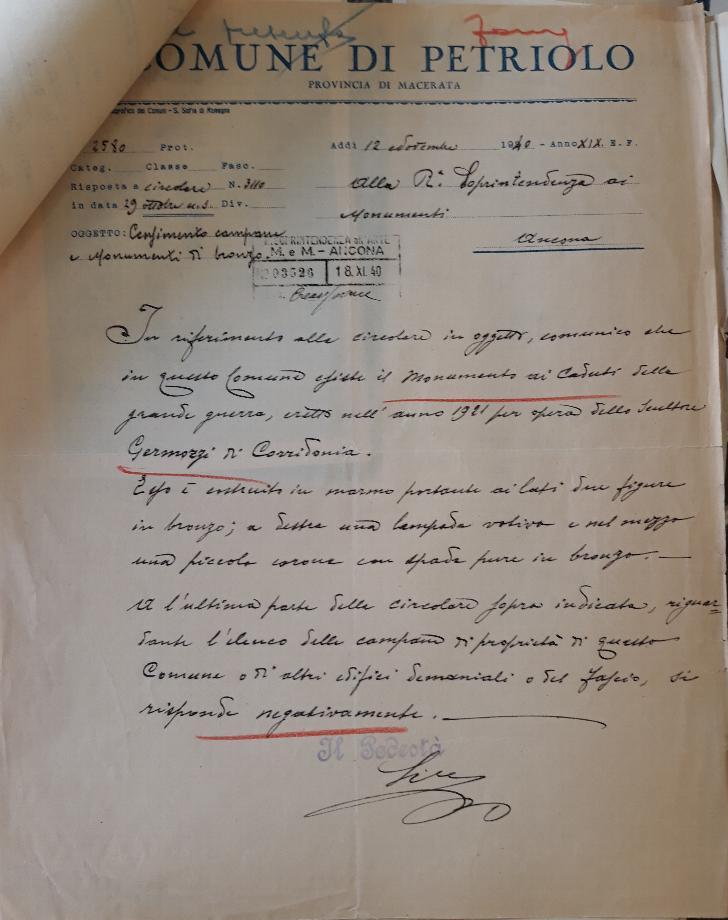 COMUNE DI PETRIOLO
PROVINCIA DI MACERATA
dei Comuni - S. Sofia di Romagna
2580 Prot. Addì 12 Novembre 1940 - Anno XIX E. F.
Categ. Classe Fasc.
Risposta a circolare N. 3110 Alla Rª Soprintendenza ai
in data 29 ottobre u.s. Div. Monumenti
OGGETTO: Censimento campane Ancona
e Monumenti di bronzo.
M. e M. - ANCONA
03526 18. XI. 40
In riferimento alla circolare in oggetto, comunico che
in questo Comune esiste il Monumento ai Caduti della
grande guerra, eretto nell'anno 1921 per opera dello Scultore
Germozzi di Corridonia.
Esso è costruito in marmo portante ai lati due figure
in bronzo; a destra una lampada votiva e nel mezzo
una piccola corona con spada pure in bronzo.
A l'ultima parte della circolare sopra indicata, riguar=
dante l'elenco delle campane di proprietà di questo
Comune o di altri edifici demaniali o del fascio, si
risponde negativamente.
Il Podestà